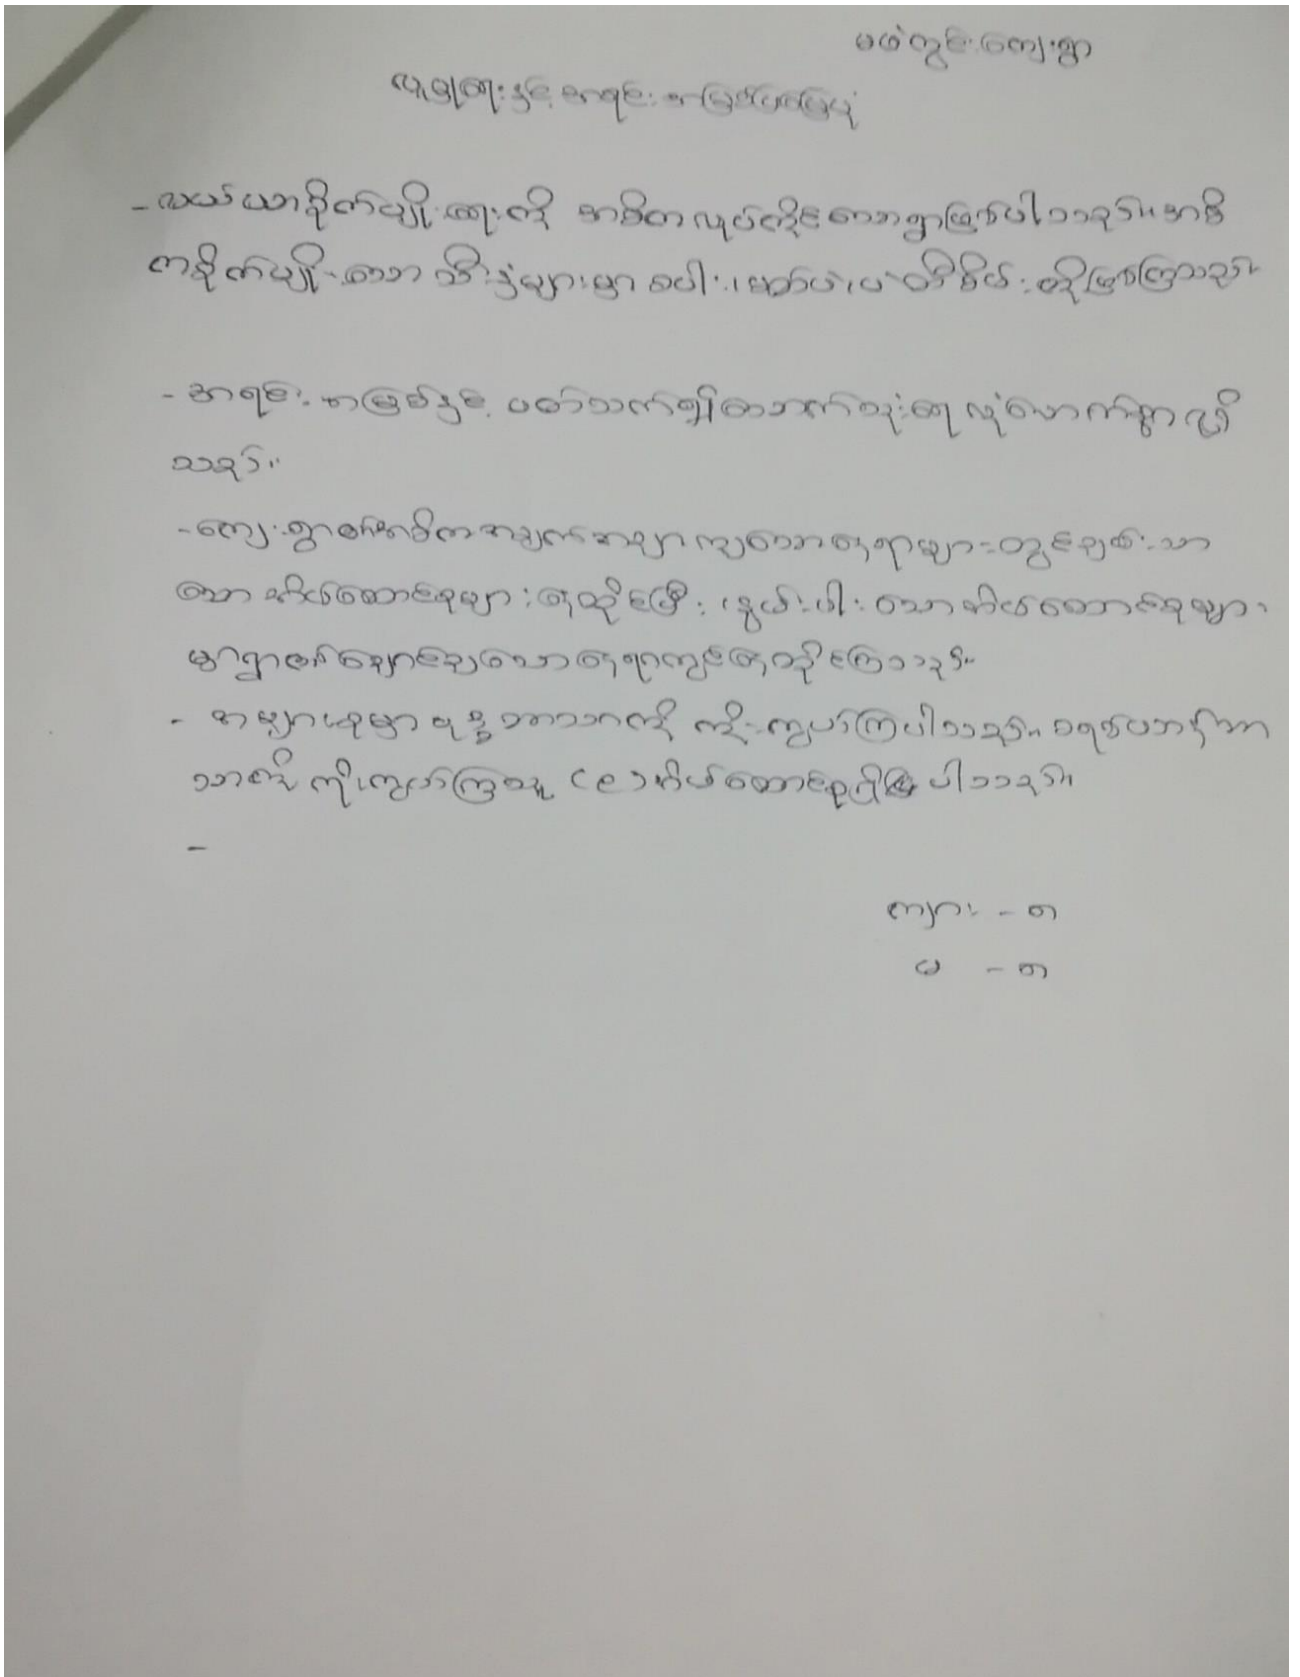 မဖဲကွင်းကျေးရွာ
လူမှုရေးနှင့် အရင်းအမြစ်ပြမြေပုံ
- လယ်ယာစိုက်ပျိုးရေးကို အဓိကလုပ်ကိုင်သောရွာဖြစ်ပါသည်။ အဓိ
ကစိုက်ပျိုးသော သီးနှံများမှာ စပါး၊ မတ်ပဲ၊ ပဲတီစိမ်းတို့ဖြစ်ကြသည်။
- အရင်းအမြစ်နှင့် ပတ်သက်၍ သောက်သုံးရေ လုံလောက်စွာရရှိ
သည်။
- ကျေးရွာ၏အဓိကအချက်အချာကျသောနေရာများတွင်ချမ်းသာ
သောအိမ်ထောင်စုများနေထိုင်ပြီး၊ နွမ်းပါးသောအိမ်ထောင်စုများ
မှာရွာ၏ချောင်ကျသောနေရာတွင်နေထိုင်ကြသည်။
- အများစုမှာ ဗုဒ္ဓဘာသာကို ကိုးကွယ်ကြပါသည်။ ခရစ်ယာန်ဘာ
သာကို ကိုးကွယ်ကြသူ (၉) အိမ်ထောင်စုရှိပါသည်။
-
ကျား - ၈
မ - ၈